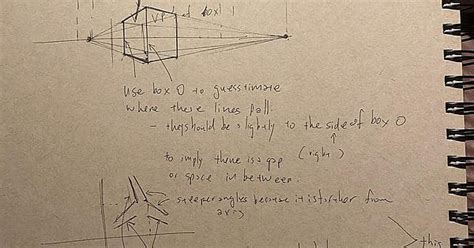 VP of box 1
Use box 0 to guesstimate
where these lines fall.
- they should be slightly to the side of box 0
(right)
to imply there is a gap
or space in between.
steeper angles because it is further from
axis
this